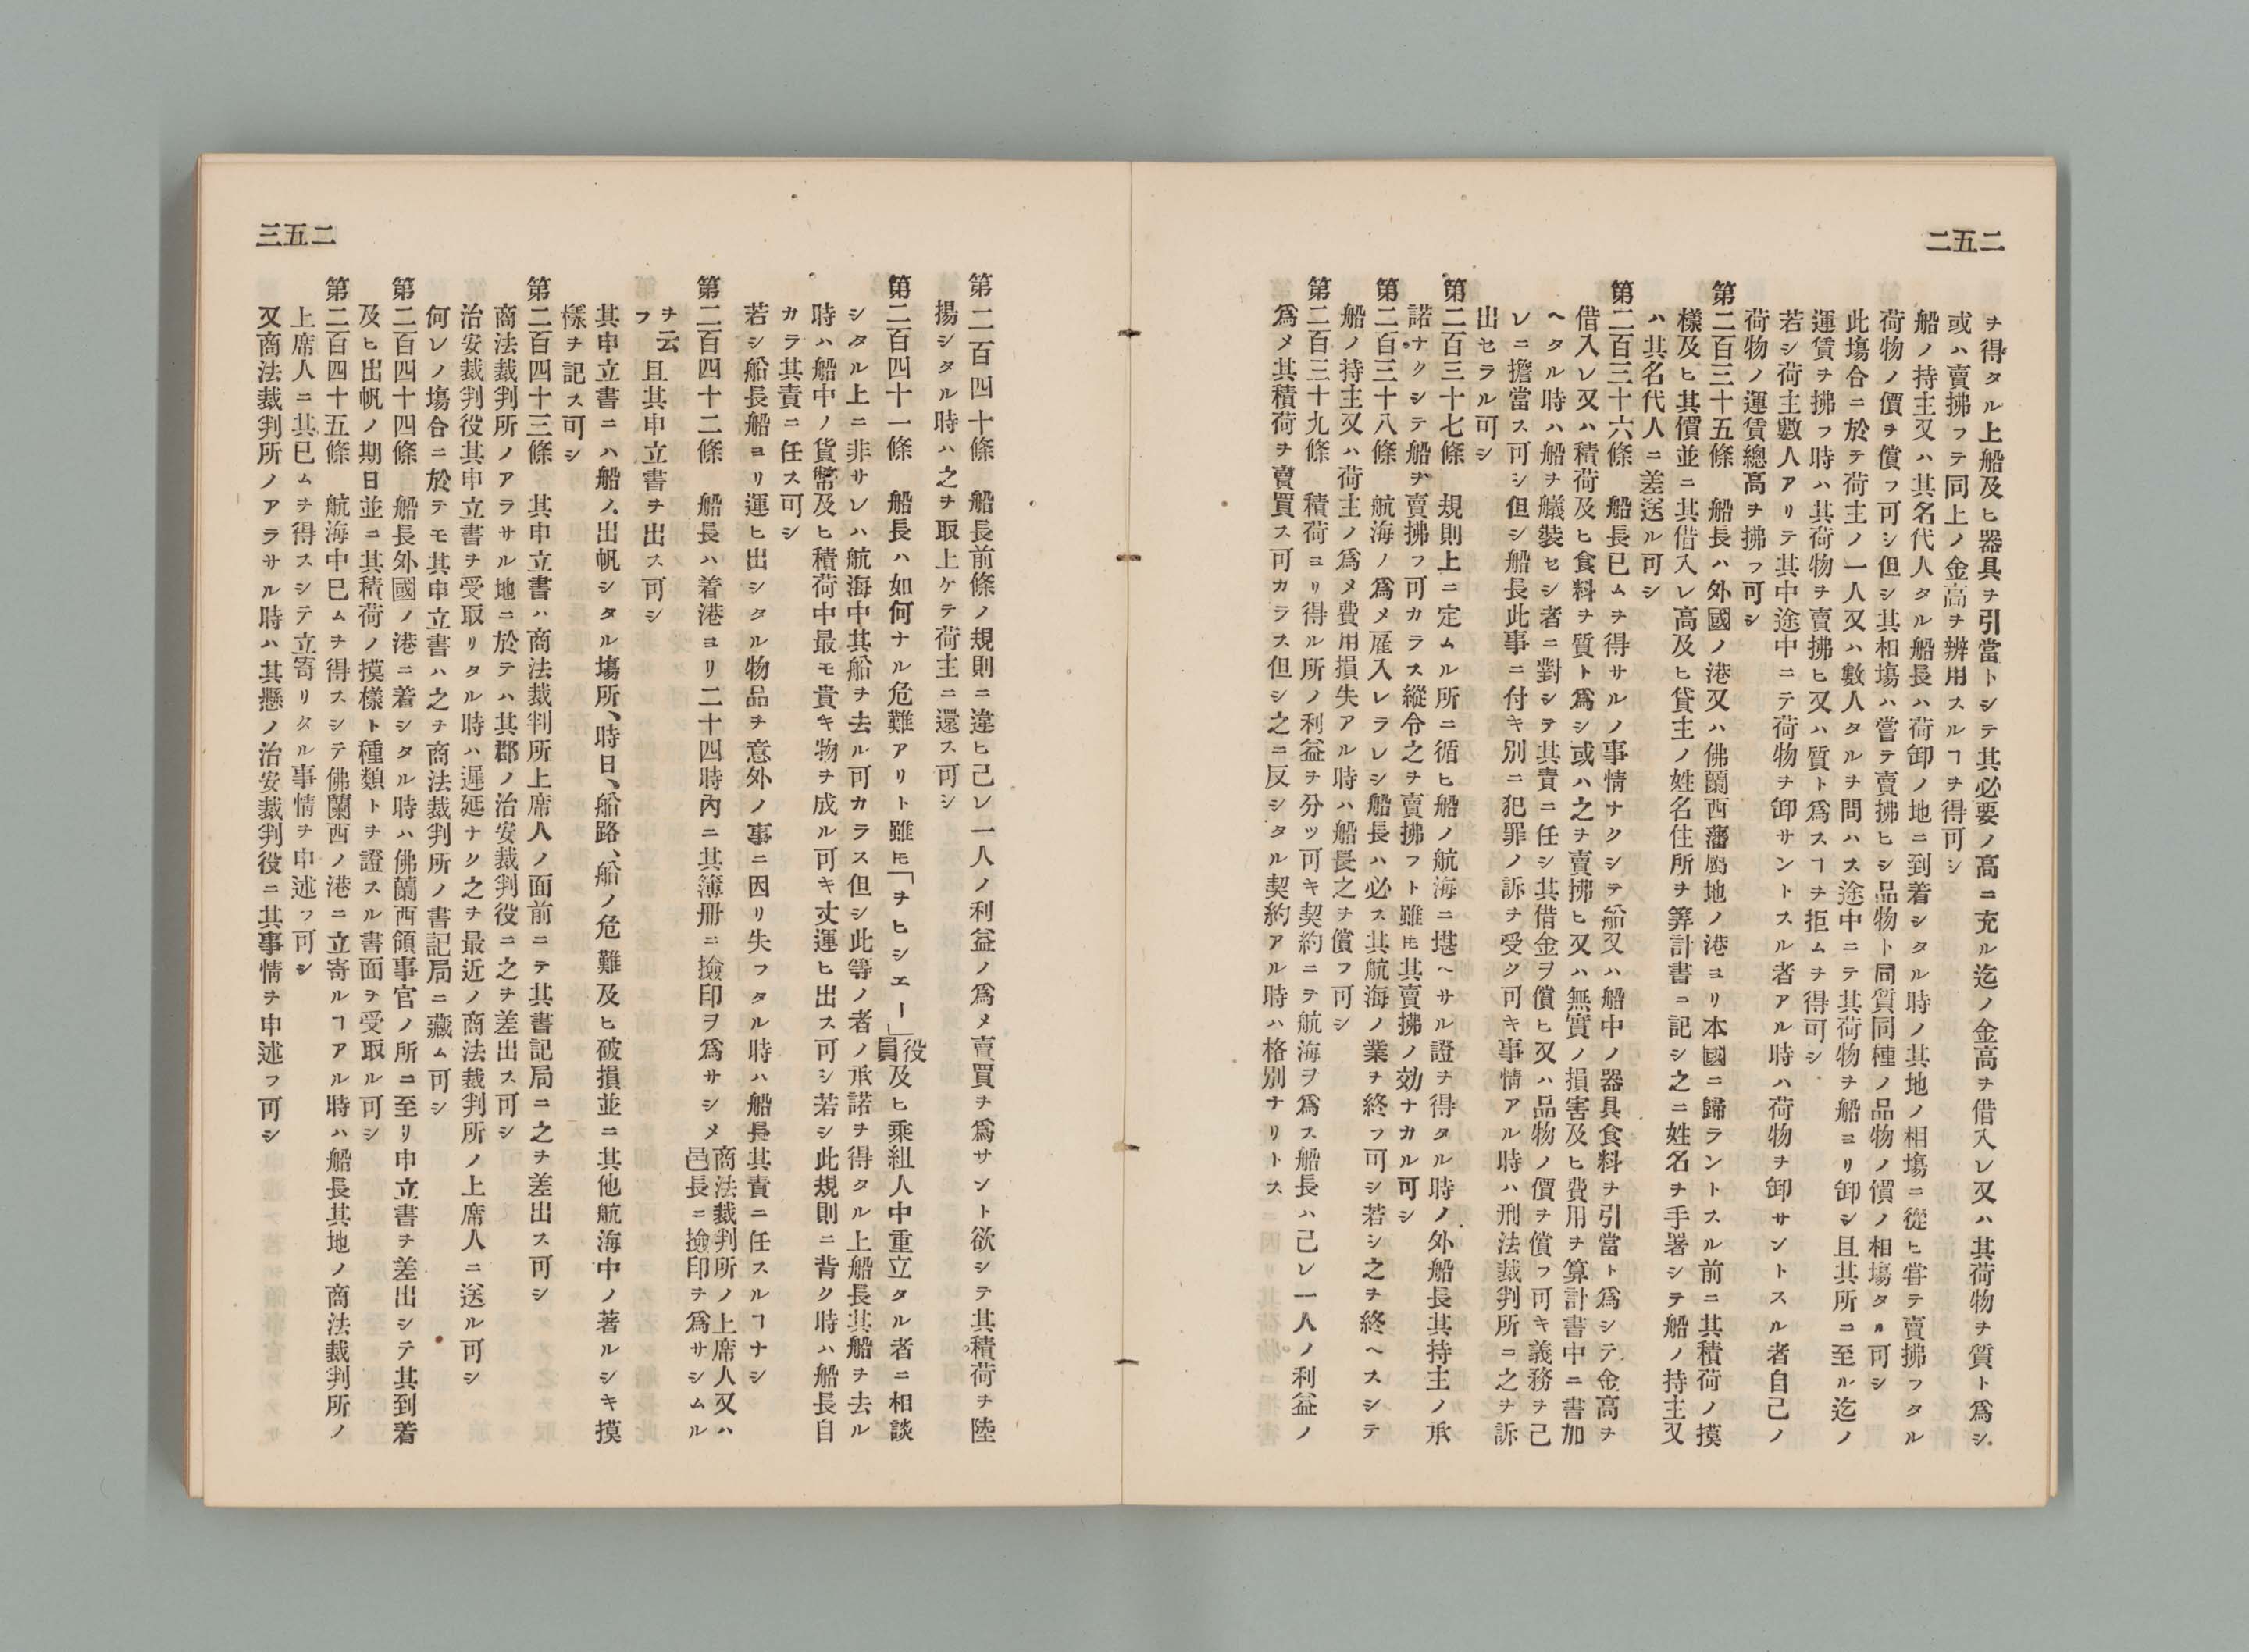 二五二
ヲ得タル上船及ヒ器具ヲ引當トシテ其必要ノ高ニ充ル迄ノ金高ヲ借入レ又ハ其荷物ヲ質ト爲シ
或ハ賣拂フテ同上ノ金高ヲ辨用スルヿヲ得可シ
船ノ持主又ハ其名代人タル船長ハ荷卸ノ地ニ到着シタル時ノ其地ノ相塲ニ從ヒ甞テ賣拂フタル
荷物ノ價ヲ償フ可シ但シ其相塲ハ嘗テ賣拂ヒシ品物ト同質同種ノ品物ノ價ノ相塲タル可シ
此塲合ニ於テ荷主ノ一人又ハ數人タルヲ問ハス途中ニテ其荷物ヲ船ヨリ卸シ且其所ニ至ル迄ノ
運賃ヲ拂フ時ハ其荷物ヲ賣拂ヒ又ハ質ト爲スヿヲ拒ムヲ得可シ
若シ荷主數人アリテ其中途中ニテ荷物ヲ卸サントスル者アル時ハ荷物ヲ卸サントスル者自己ノ
荷物ノ運賃總高ヲ拂フ可シ
第二百三十五條　船長ハ外國ノ港又ハ佛蘭西藩屬地ノ港ヨリ本國ニ歸ラントスル前ニ其積荷ノ摸
樣及ヒ其價並ニ其借入レ高及ヒ貸主ノ姓名住所ヲ筭計書ニ記シ之ニ姓名ヲ手署シテ船ノ持主又
ハ其名代人ニ差送ル可シ
第二百三十六條　船長已ムヲ得サルノ事情ナクシテ船又ハ船中ノ器具食料ヲ引當ト爲シテ金高ヲ
借入レ又ハ積荷及ヒ食料ヲ質ト爲シ或ハ之ヲ賣拂ヒ又ハ無實ノ損害及ヒ費用ヲ算計書中ニ書加
ヘタル時ハ船ヲ艤裝セシ者ニ對シテ其責ニ任シ其借金ヲ償ヒ又ハ品物ノ價ヲ償フ可キ義務ヲ己
レニ擔當ス可シ但シ船長此事ニ付キ別ニ犯罪ノ訴ヲ受ク可キ事情アル時ハ刑法裁判所ニ之ヲ訴
出セラル可シ
第二百三十七條　規則上ニ定ムル所ニ循ヒ船ノ航海ニ堪ヘサル證ヲ得タル時ノ外船長其持主ノ承
諾ナクシテ船ヲ賣拂フ可カラス縱令之ヲ賣拂フト雖𪜈其賣拂ノ効ナカル可シ
第二百三十八條　航海ノ爲メ雇入レラレシ船長ハ必ス其航海ノ業ヲ終フ可シ若シ之ヲ終ヘスシテ
船ノ持主又ハ荷主ノ爲メ費用損失アル時ハ船長之ヲ償フ可シ
第二百三十九條　積荷ヨリ得ル所ノ利益ヲ分ツ可キ契約ニテ航海ヲ爲ス船長ハ己レ一人ノ利益ノ
爲メ其積荷ヲ賣買ス可カラス但シ之ニ反シタル契約アル時ハ格別ナリトス
二五三
第二百四十條　船長前條ノ規則ニ違ヒ己レ一人ノ利益ノ爲メ賣買ヲ爲サント欲シテ其積荷ヲ陸
揚シタル時ハ之ヲ取上ケテ荷主ニ還ス可シ
第二百四十一條　船長ハ如何ナル危難アリト雖𪜈「ヲヒシエー」役員及ヒ乘組人中重立タル者ニ相談
シタル上ニ非サレハ航海中其船ヲ去ル可カラス但シ此等ノ者ノ承諾ヲ得タル上船長其船ヲ去ル
時ハ船中ノ貨幣及ヒ積荷中最モ貴キ物ヲ成ル可キ丈運ヒ出ス可シ若シ此規則ニ背ク時ハ船長自
カラ其責ニ任ス可シ
若シ船長船ヨリ運ヒ出シタル物品ヲ意外ノ事ニ因リ失フタル時ハ船長其責ニ任スルヿナシ
第二百四十二條　船長ハ着港ヨリ二十四時內ニ其簿册ニ撿印ヲ爲サシメ商法裁判所ノ上席人又ハ邑長ニ撿印ヲ爲サシムル
ヲ云フ且其申立書ヲ出ス可シ
其申立書ニハ船ノ出帆シタル塲所、時日、船路、船ノ危難及ヒ破損並ニ其他航海中ノ著ルシキ摸
樣ヲ記ス可シ
第二百四十三條　其申立書ハ商法裁判所上席人ノ面前ニテ其書記局ニ之ヲ差出ス可シ
商法裁判所ノアラサル地ニ於テハ其郡ノ治安裁判役ニ之ヲ差出ス可シ
治安裁判役其申立書ヲ受取リタル時ハ遲延ナク之ヲ最近ノ商法裁判所ノ上席人ニ送ル可シ
何レノ塲合ニ於テモ其申立書ハ之ヲ商法裁判所ノ書記局ニ藏ム可シ
第二百四十四條　船長外國ノ港ニ着シタル時ハ佛蘭西領事官ノ所ニ至リ申立書ヲ差出シテ其到着
及ヒ出帆ノ期日並ニ其積荷ノ摸樣ト種類トヲ證スル書面ヲ受取ル可シ
第二百四十五條　航海中已ムヲ得スシテ佛蘭西ノ港ニ立寄ルヿアル時ハ船長其地ノ商法裁判所ノ
上席人ニ其已ムヲ得スシテ立寄リタル事情ヲ申述フ可シ
又商法裁判所ノアラサル時ハ其懸ノ治安裁判役ニ其事情ヲ申述フ可シ